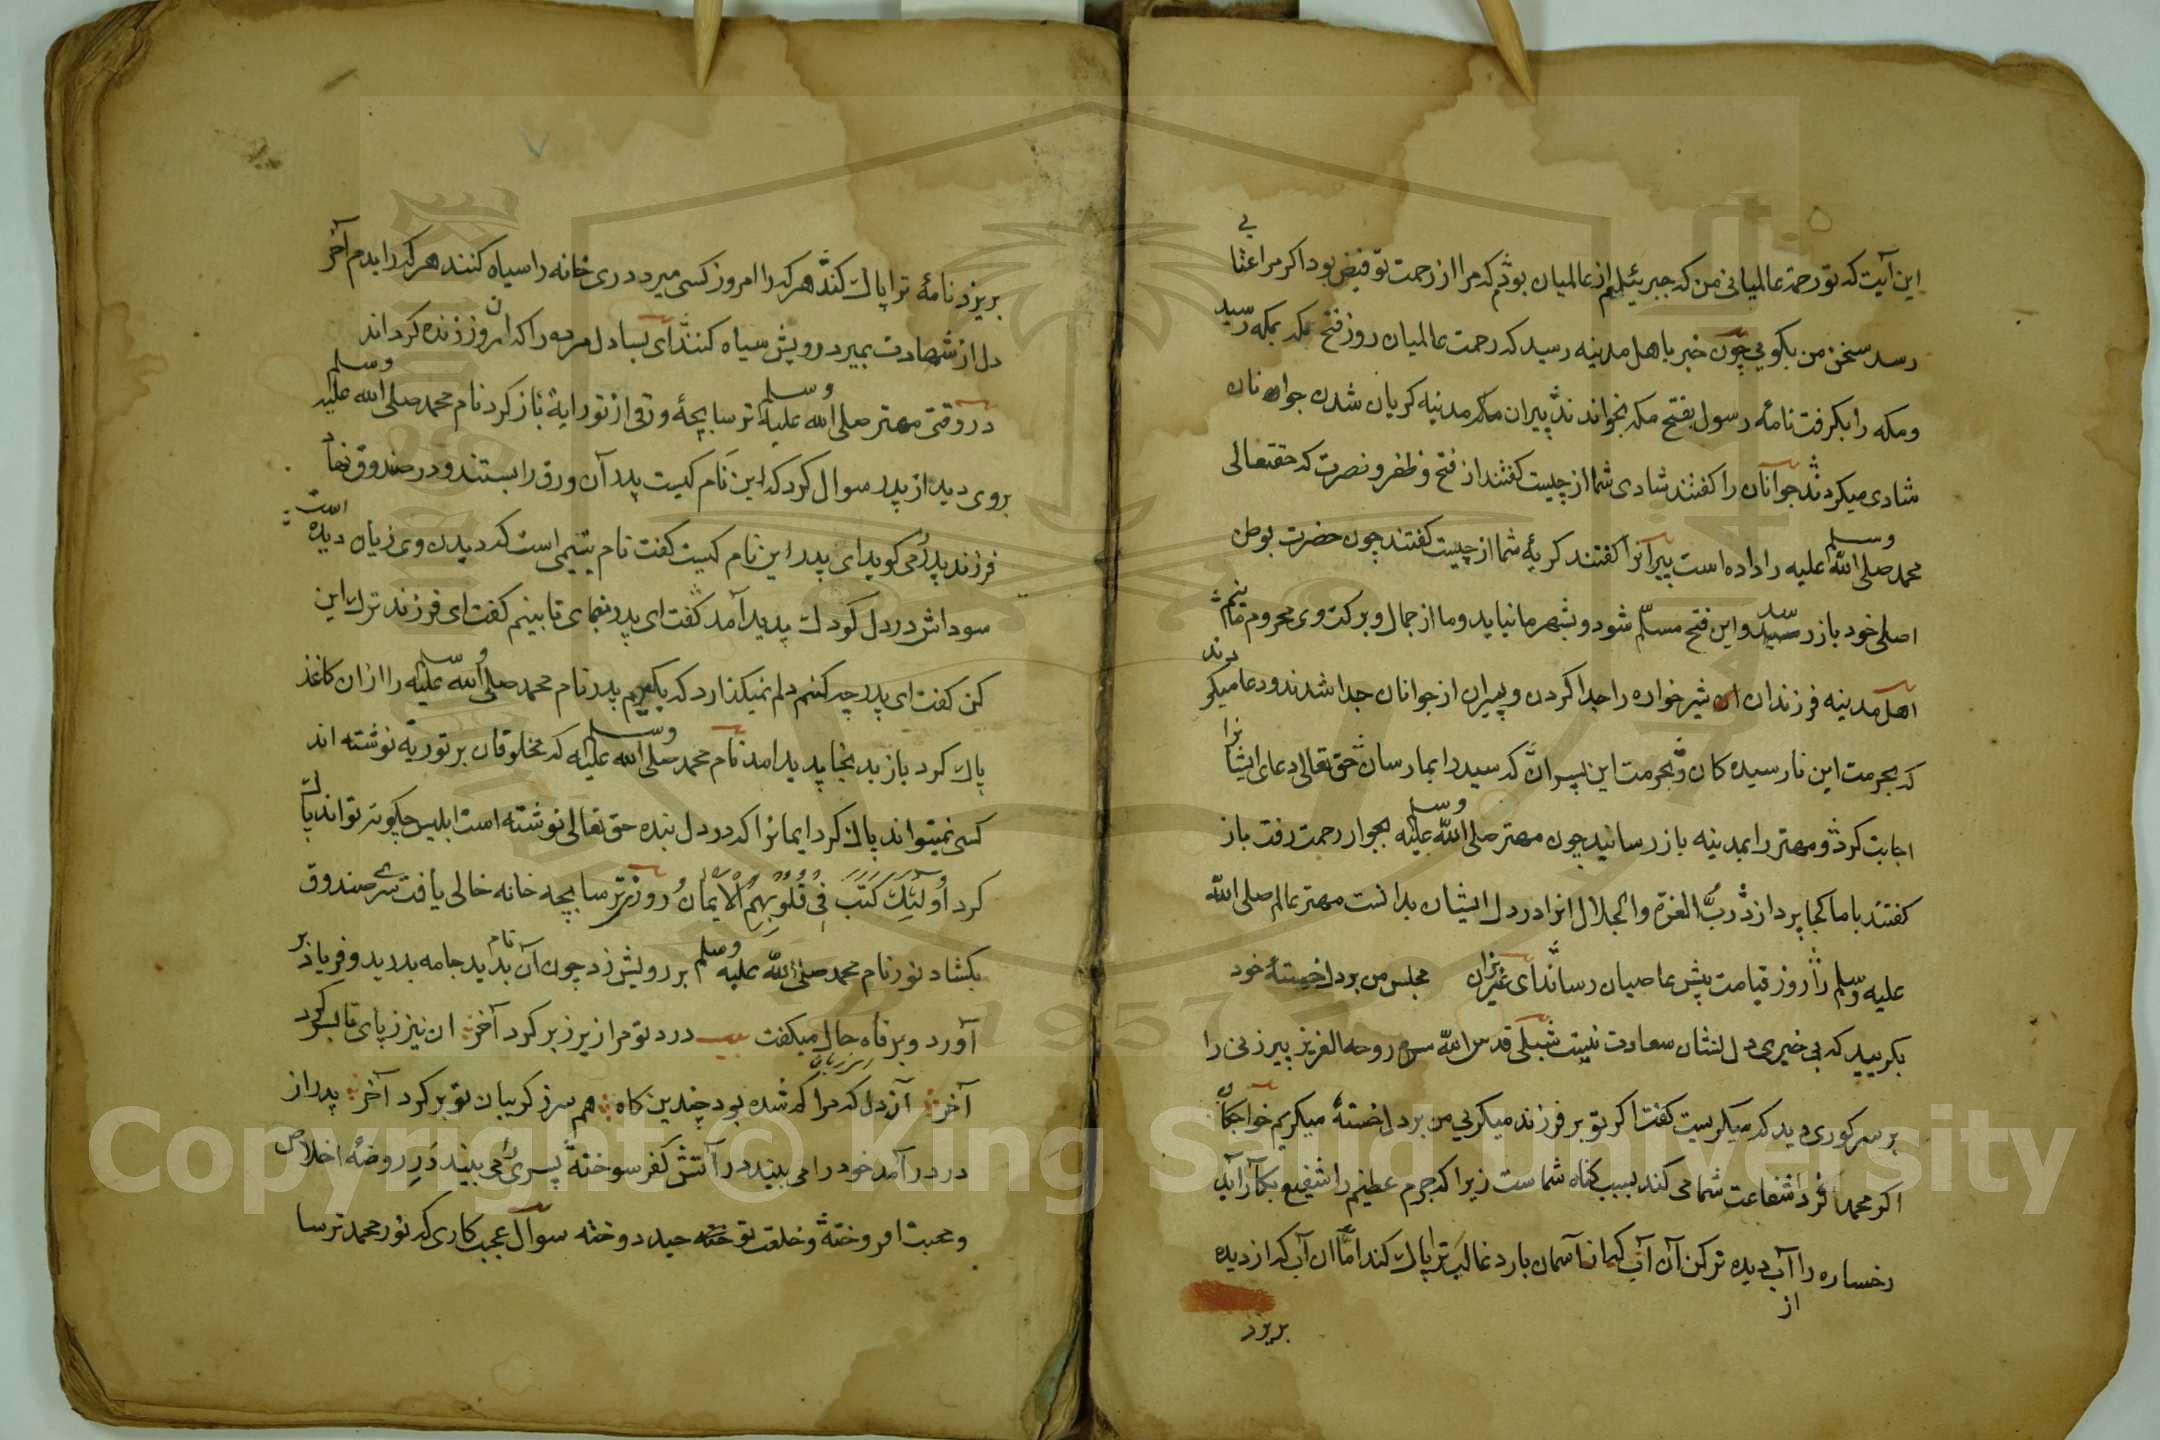 این آیت که تو رحمة عالمیانی من که جبرئیلم از عالمیان بودم که مرا از رحمت تو فیض بود اکر مرا عنا بی
رسد سخن من بکویی چون خبر با هل مدینه رسید که رحمت عالمیان روز فتح مکه بمکه رسید
ومکه را بکرفت نامهٔ رسول بفتح مکه بخواندند پیران مکه مدینه کریان شدن جوانان
شادی میکردند جوانان را کفتند شادی شما از چیست کفتند از فتح و ظفر و نصرت که حقتعالی
محمد صلی الله علیه وسلم را داده است پیرانرا کفتند کریهٔ شما از چیست کفتند چون حضرت بوطن
اصلی خود باز رسید واین فتح مسلّم شود و بشهر ما نیاید وما از جمال و برکت وی محروم مانیم
اهل مدینه فرزندان شیر خواره را جدا کردن و پیران از جوانان جدا شدند ودعا میکردند
که بحرمت این نارسیده کان و بحرمت این پیران که سید را بما رسان حق تعالی دعای ایشانرا
اجابت کرد و مهتر را بمدینه باز رسانید چون مهتر صلی الله علیه وسلم بجوار رحمت رفت باز
کفتند با ما کجا پردازد ربّ العزة والجلال انرا در دل ایشان بدانست مهتر عالم صلی الله
علیه وسلم را روز قیامت پیش عاصیان رساند ای عزیزان مجلس من بر دل خستهٔ خود
بکریید که بی خبری دل نشان سعادت نیست شبلی قدس الله سره روحه العزیز پیرزنی را
بر سر کوری دید که میکریست کفت اکر تو بر فرزند میکریی من بر دل خستهٔ میکریم خواجکان
اکر محمد فردا شفاعت شما می کند بسبب کناه شماست زیرا که جرم عظیم را شفیع بکار آید
رخساره را از آب دیده تر کن آن آب که از آسمان بارد غالب ترا پاک کند امّا ان آب که از دیده
بریزد
بریزد نامهٔ ترا پاک کند هر که را امروز کسی میرد در ری خانه را سیاه کنند هر که را بدم آخر
دل از شهادت بمیرد رویش سیاه کنند ای بسا دل مرده را که امروز زنده کرداند
در وقتی مهتر صلی الله علیه وسلم ترسا بچهٔ ورقی از توراة باز کرد نام محمد صلی الله علیه وسلم
بروی دید از پدر سوال کرد که این نام کیست پدر آن ورق را بستند و در صندوق نهاد
فرزند پدر را می کوید ای پدر این نام کیست کفت نام یتیمی است که پدرن وی زیان دیده است
سوداش در دل کودک پدید آمد کفت ای پدر بنمای تا بینم کفت ای فرزند ترک این
کن کفت ای پدر چه کنم دلم نمیکذارد که بکیرم پدر نام محمد صلی الله علیه وسلم را ازان کاغذ
پاک کرد باز بدنجا پدید امد نام محمد صلی الله علیه وسلم که مخلوقان بر توریه نوشته اند
کسی نمیتواند پاک کرد ایمانرا که در دل بنده حق تعالی نوشته است ابلیس چکونه تواند پاک
کرد اُولٰئِکَ کَتَبَ فِی قُلُوبِهِمُ الْاِیمَانَ روزی ترسا بچه خانه خالی یافت سر صندوق
بکشاد نور نام محمد صلی الله علیه وسلم بر رویش زد چون آن نام بدید جامه بدرید و فریاد بر
آورد و بزفان حال میکفت بیت درد تو مرا زیر زبر کرد آخر ان نیز ز پای تا بسر کرد
آخر آن دل که مرا کم شده بود چندین کاه هم سر ز کریبان تو بر کرد آخر پدر از
در درآمد خود را می بیند در آتش کفر سوخته پسری می بیند در روضهٔ اخلاص
ومحبت افروخته و خلعت توحید دوخته سوال عجب کاری که نور محمد ترسا
Copyright © King Saud University
1957